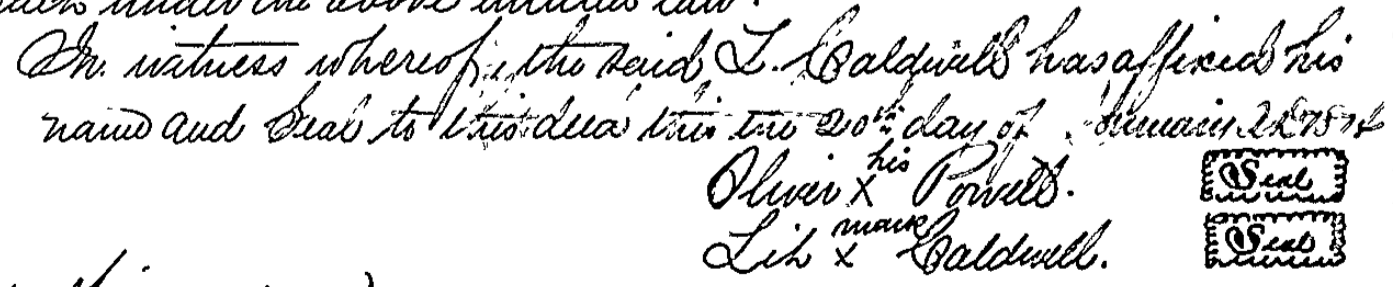 under the above entitled law.
In witness whereof, the said L. Caldwell has affixed his
name and Seal to this deed this the 20th day of
his
Oliver X Powell. Seal
mark
Lih x Caldwell. Seal